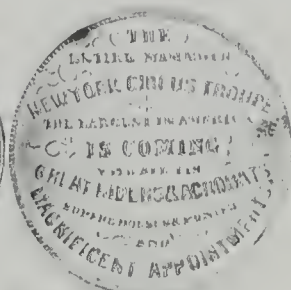 THE
ENTIRE MAMMOTH
NEW YORK CIRCUS TROUPE
THE LARGEST IN AMERICA
IS COMING!
WITH ALL ITS
GREAT RIDERS & ACROBATS
AND
MAGNIFICENT APPOINTMENTS